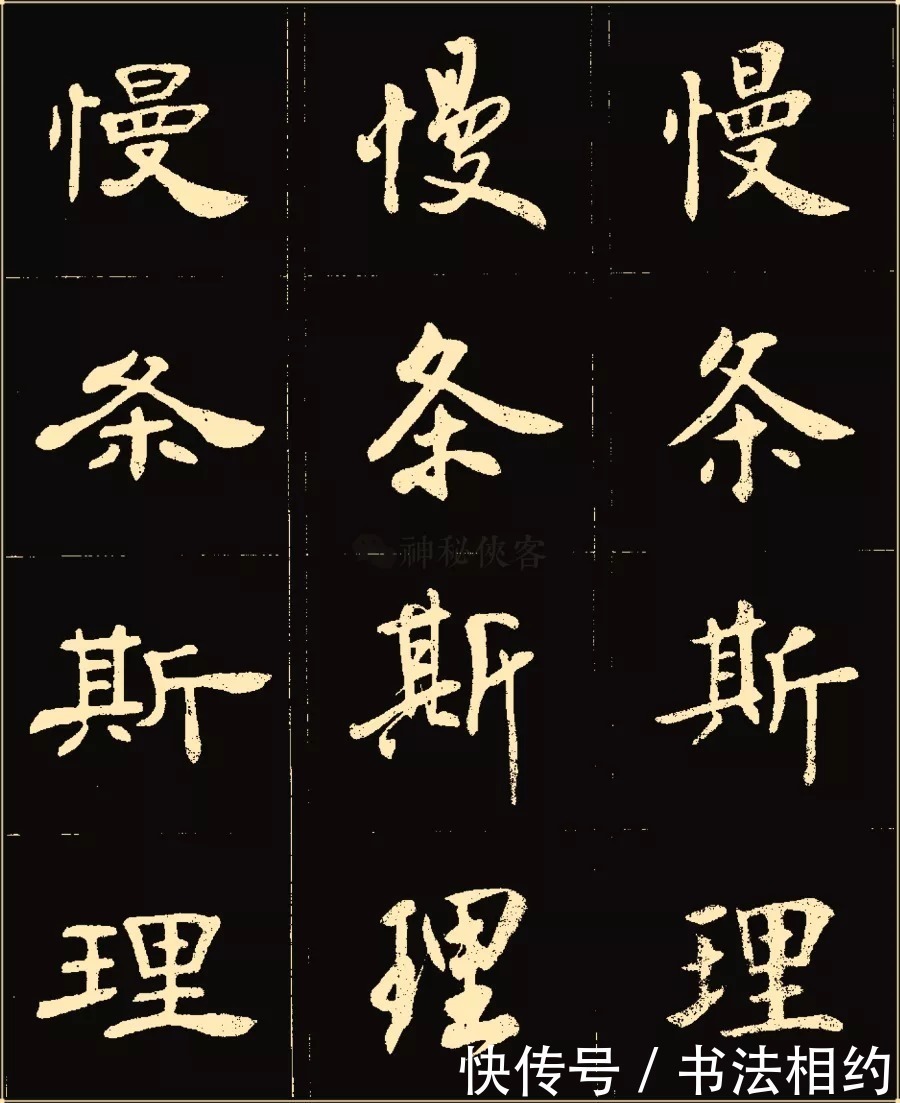 慢 慢 慢
条 条 条
神秘侠客
斯 斯 斯
理 理 理
快传号 / 书法相约